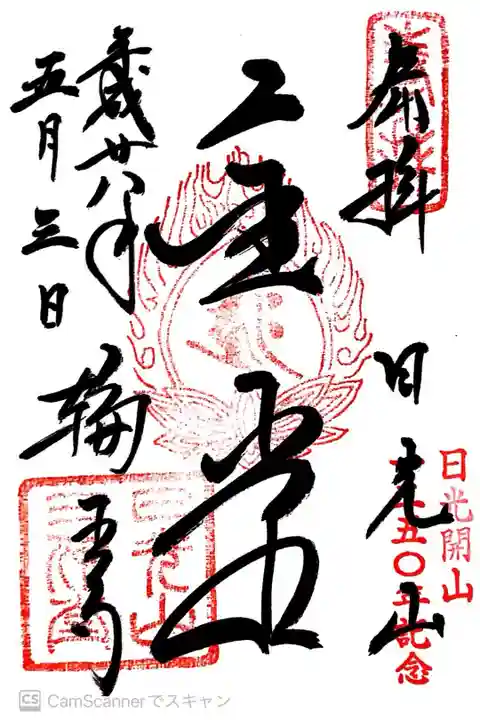 奉拝 日光山
日光開山
一二五〇年記念
堂
平成廿八年
五月三日
輪王寺
CS CamScannerでスキャン